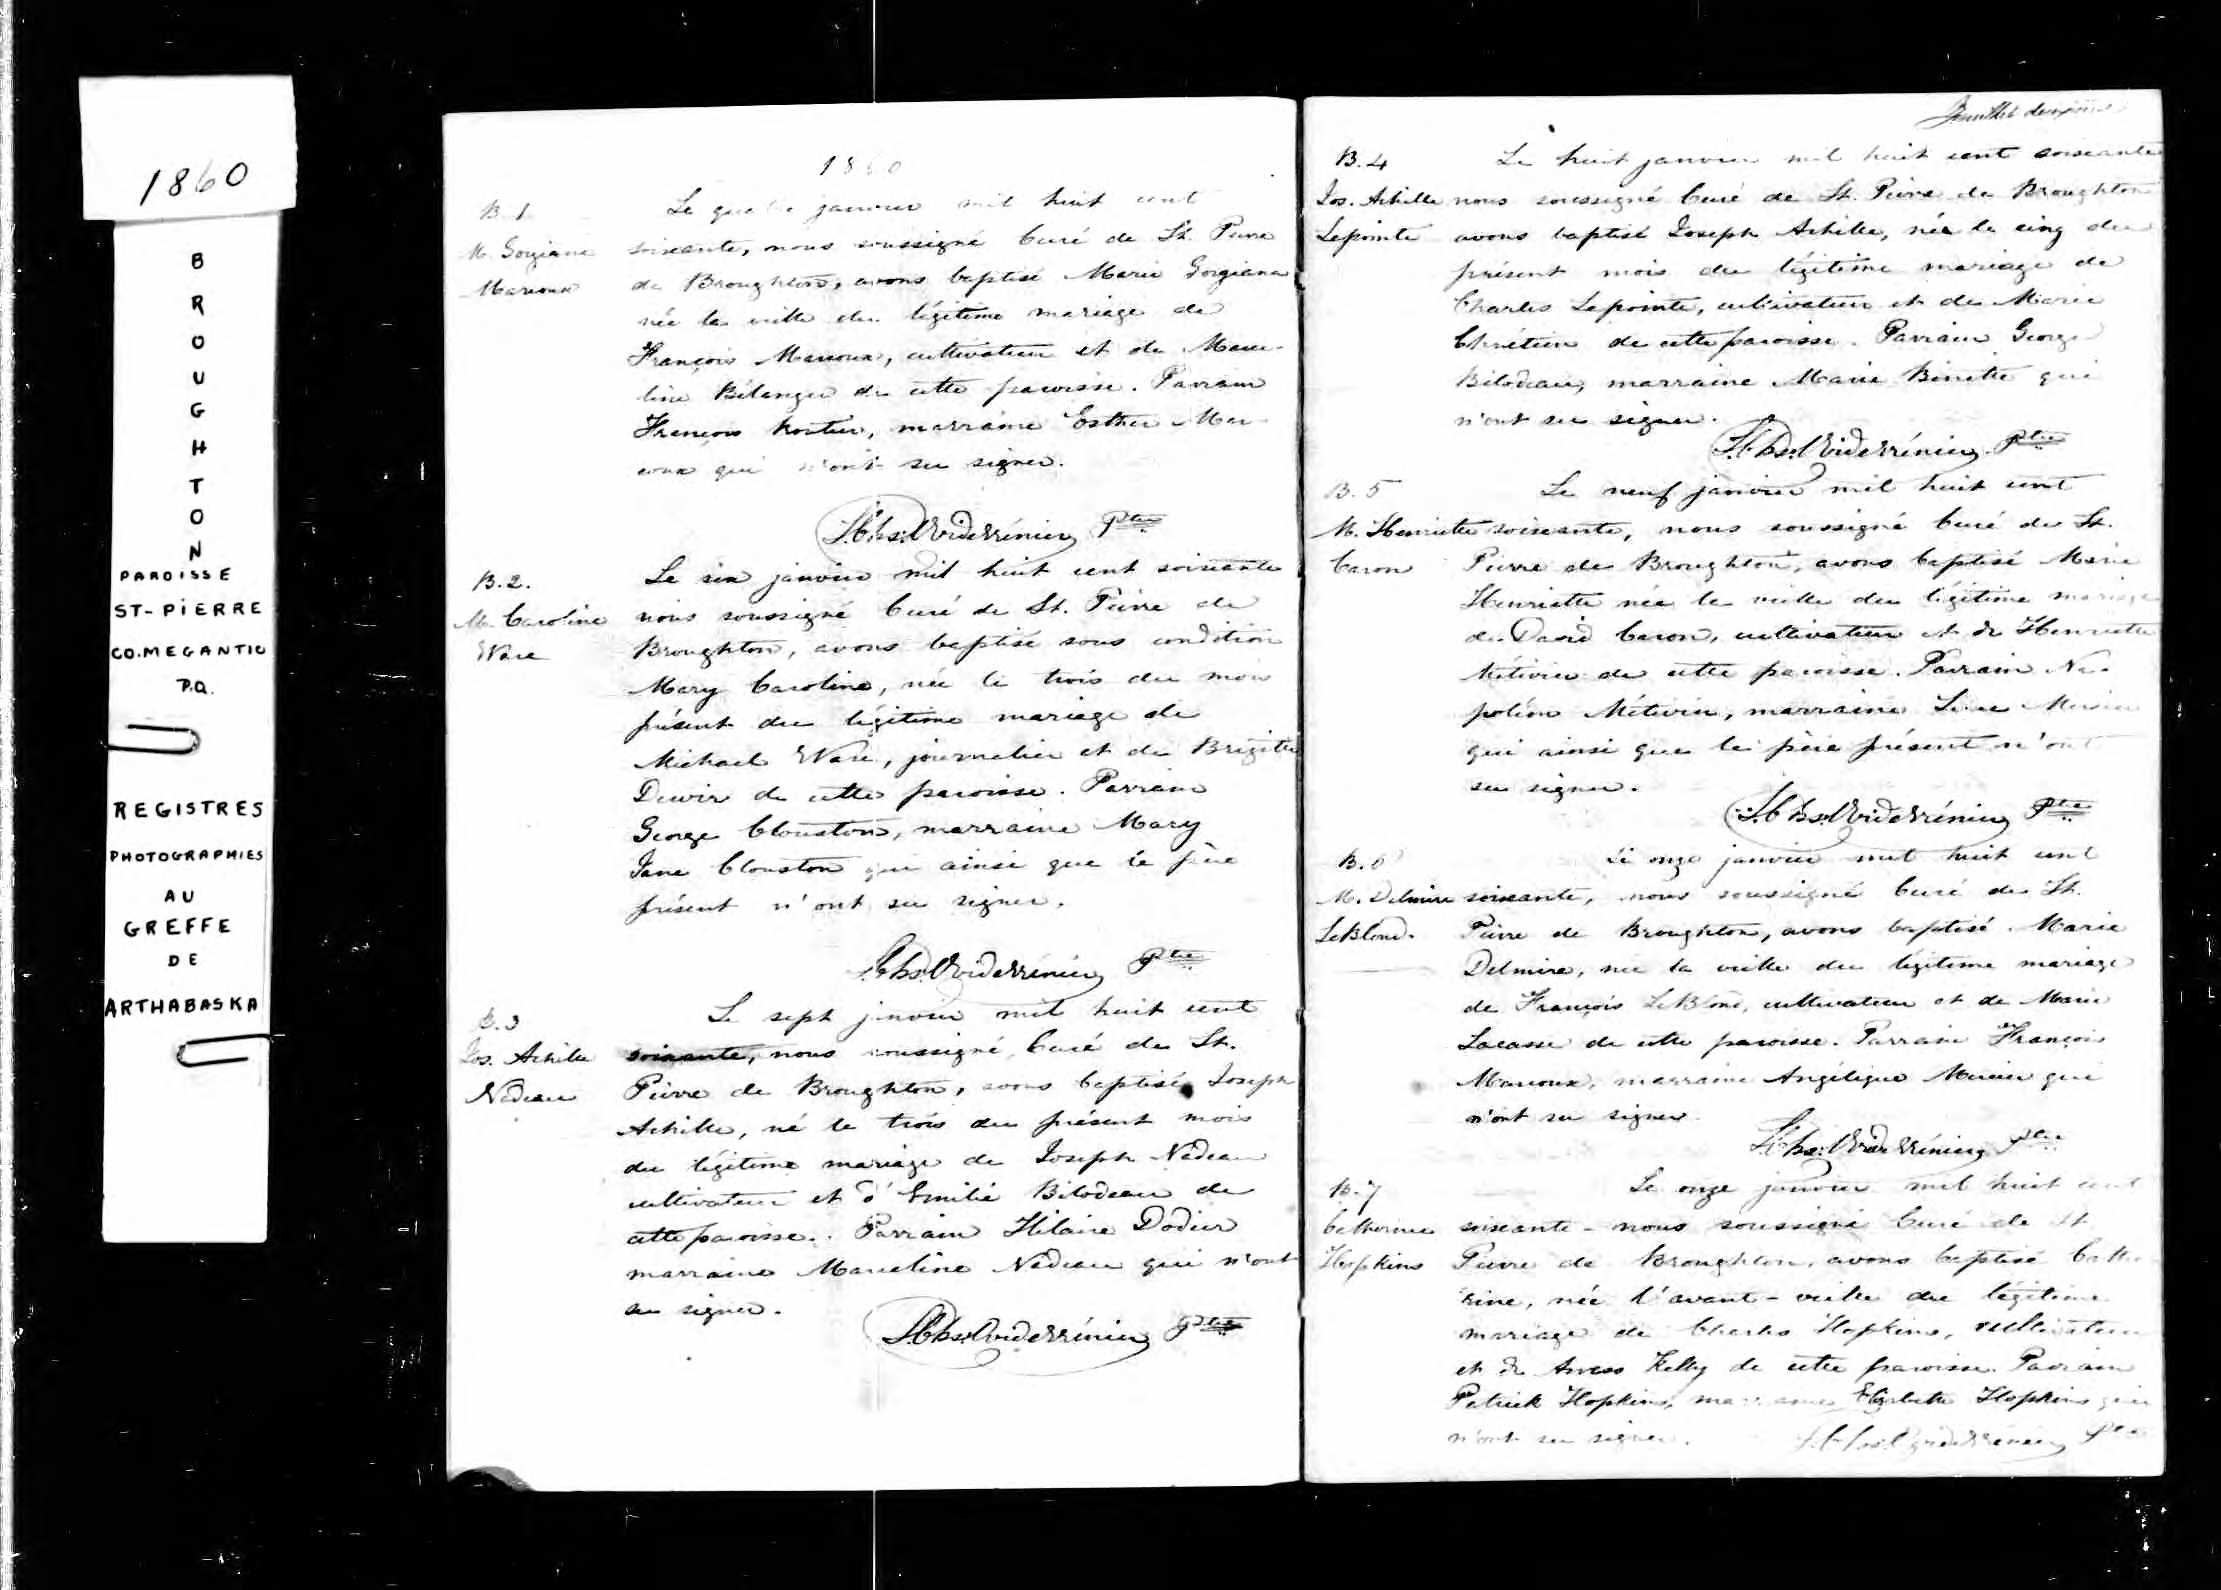 1860
B
R
O
U
G
H
T
O
N
PAROISSE
ST-PIERRE
CO.MEGANTIC
P.Q.
REGISTRES
PHOTOGRAPHIES
AU
GREFFE
DE
ARTHABASKA
1860
B. 1
M. Gorgiana
Marcoux
Le quatre janvier mil huit cent
soixante, nous soussigné Curé de St. Pierre
de Broughton, avons baptisé Marie Gorgiana
née la veille du légitime mariage de
François Marcoux, cultivateur et de Marce-
line Bélanger de cette paroisse. Parrain
François, marraine Esther Mar-
coux qui n'ont su signer.
Ptre
B. 2.
M. Caroline
Ware
Le six janvier mil huit cent soixante
nous soussigné Curé de St. Pierre de
Broughton, avons baptisé sous condition
Mary Caroline, née le trois du mois
présent du légitime mariage de
Michael Ware, journalier et de Brigitte
Dewir de cette paroisse. Parrain
George Clouston, marraine Mary
Jane Clouston qui ainsi que le père
présent n'ont su signer.
Ptre
B. 3
Jos. Achille
Nadeau
Le sept janvier mil huit cent
soixante, nous soussigné, Curé de St.
Pierre de Broughton, avons baptisé Joseph
Achille, né le trois du présent mois
du légitime mariage de Joseph Nadeau
cultivateur et d'Emilie Bilodeau de
cette paroisse. Parrain Hilaire Dodier
marraine Marceline Nadeau qui n'ont
su signer.
Ptre
Feuillet deuxième
B. 4
Jos. Achille
Lepointe
Le huit janvier mil huit cent soixante
nous soussigné Curé de St. Pierre de Broughton
avons baptisé Joseph Achille, née le cinq du
présent mois du légitime mariage de
Charles Lepointe, cultivateur et de Marie
Chrétien de cette paroisse. Parrain George
Bilodeau, marraine Marie Binette qui
n'ont su signer.
Ptre
B. 5
M. Henriette
Caron
Le neuf janvier mil huit cent
soixante, nous soussigné Curé de St.
Pierre de Broughton, avons baptisé Marie
Henriette née la veille du légitime mariage
de David Caron, cultivateur et de Henriette
Métivier de cette paroisse. Parrain Na-
poléon Métivier, marraine
qui ainsi que le père présent n'ont
su signer.
Ptre
B. 6
M. Delmire
LeBlond.
Le onze janvier mil huit cent
soixante, nous soussigné Curé de St.
Pierre de Broughton, avons baptisé Marie
Delmire, née la veille du légitime mariage
de François LeBlond, cultivateur et de Marie
Lacasse de cette paroisse. Parrain François
Marcoux, marraine Angélique Mercier qui
n'ont su signer.
Ptre
B. 7
Catherine
Hopkins
Le onze janvier mil huit cent
soixante - nous soussigné Curé de St.
Pierre de Broughton, avons baptisé Cathe-
rine, née l'avant-veille du légitime
mariage de Charles Hopkins, cultivateur
et de Kelly de cette paroisse. Parrain
Patrick Hopkins, marraine Elizabeth Hopkins qui
n'ont su signer.
Ptre